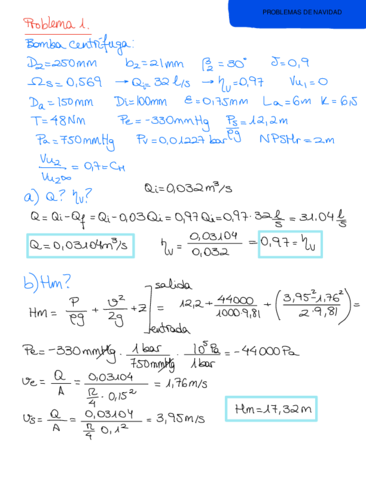 PROBLEMAS DE NAVIDAD
Problema 1.
Bomba centrífuga:
D₂=250mm b₂=21mm β₂=30° δ=0,9
Ωs=0,569 → Qi=32 l/s → ηv=0,97 Vu₁=0
Da=150mm Di=100mm ε=0,75mm La=6m K=6,5
T=48Nm Pe=-330mmHg Ps/ρg=12,2m
Pa=750mmHg Pv=0,01227 bar NPSHr=2m
Vu₂/Vu₂∞=0,7=CH
a) Q? ηv? Qi=0,032m³/s
Q=Qi-Qf=Qi-0,03Qi=0,97Qi=0,97·32 l/s=31.04 l/s
Q=0,03104m³/s ηv=0,03104/0,032=0,97=ηv
b) Hm?
Hm=P/ρg+v²/2g+z]salida entrada=12,2+44000/1000·9,81+(3,95²-1,76²/2·9,81)=
Pe=-330mmHg·1bar/750mmHg·10⁵Pa/1bar=-44000Pa
ve=Q/A=0,03104/π/4·0,15²=1,76m/s
vs=Q/A=0,03104/π/4 0,1²=3,95m/s
Hm=17,32m